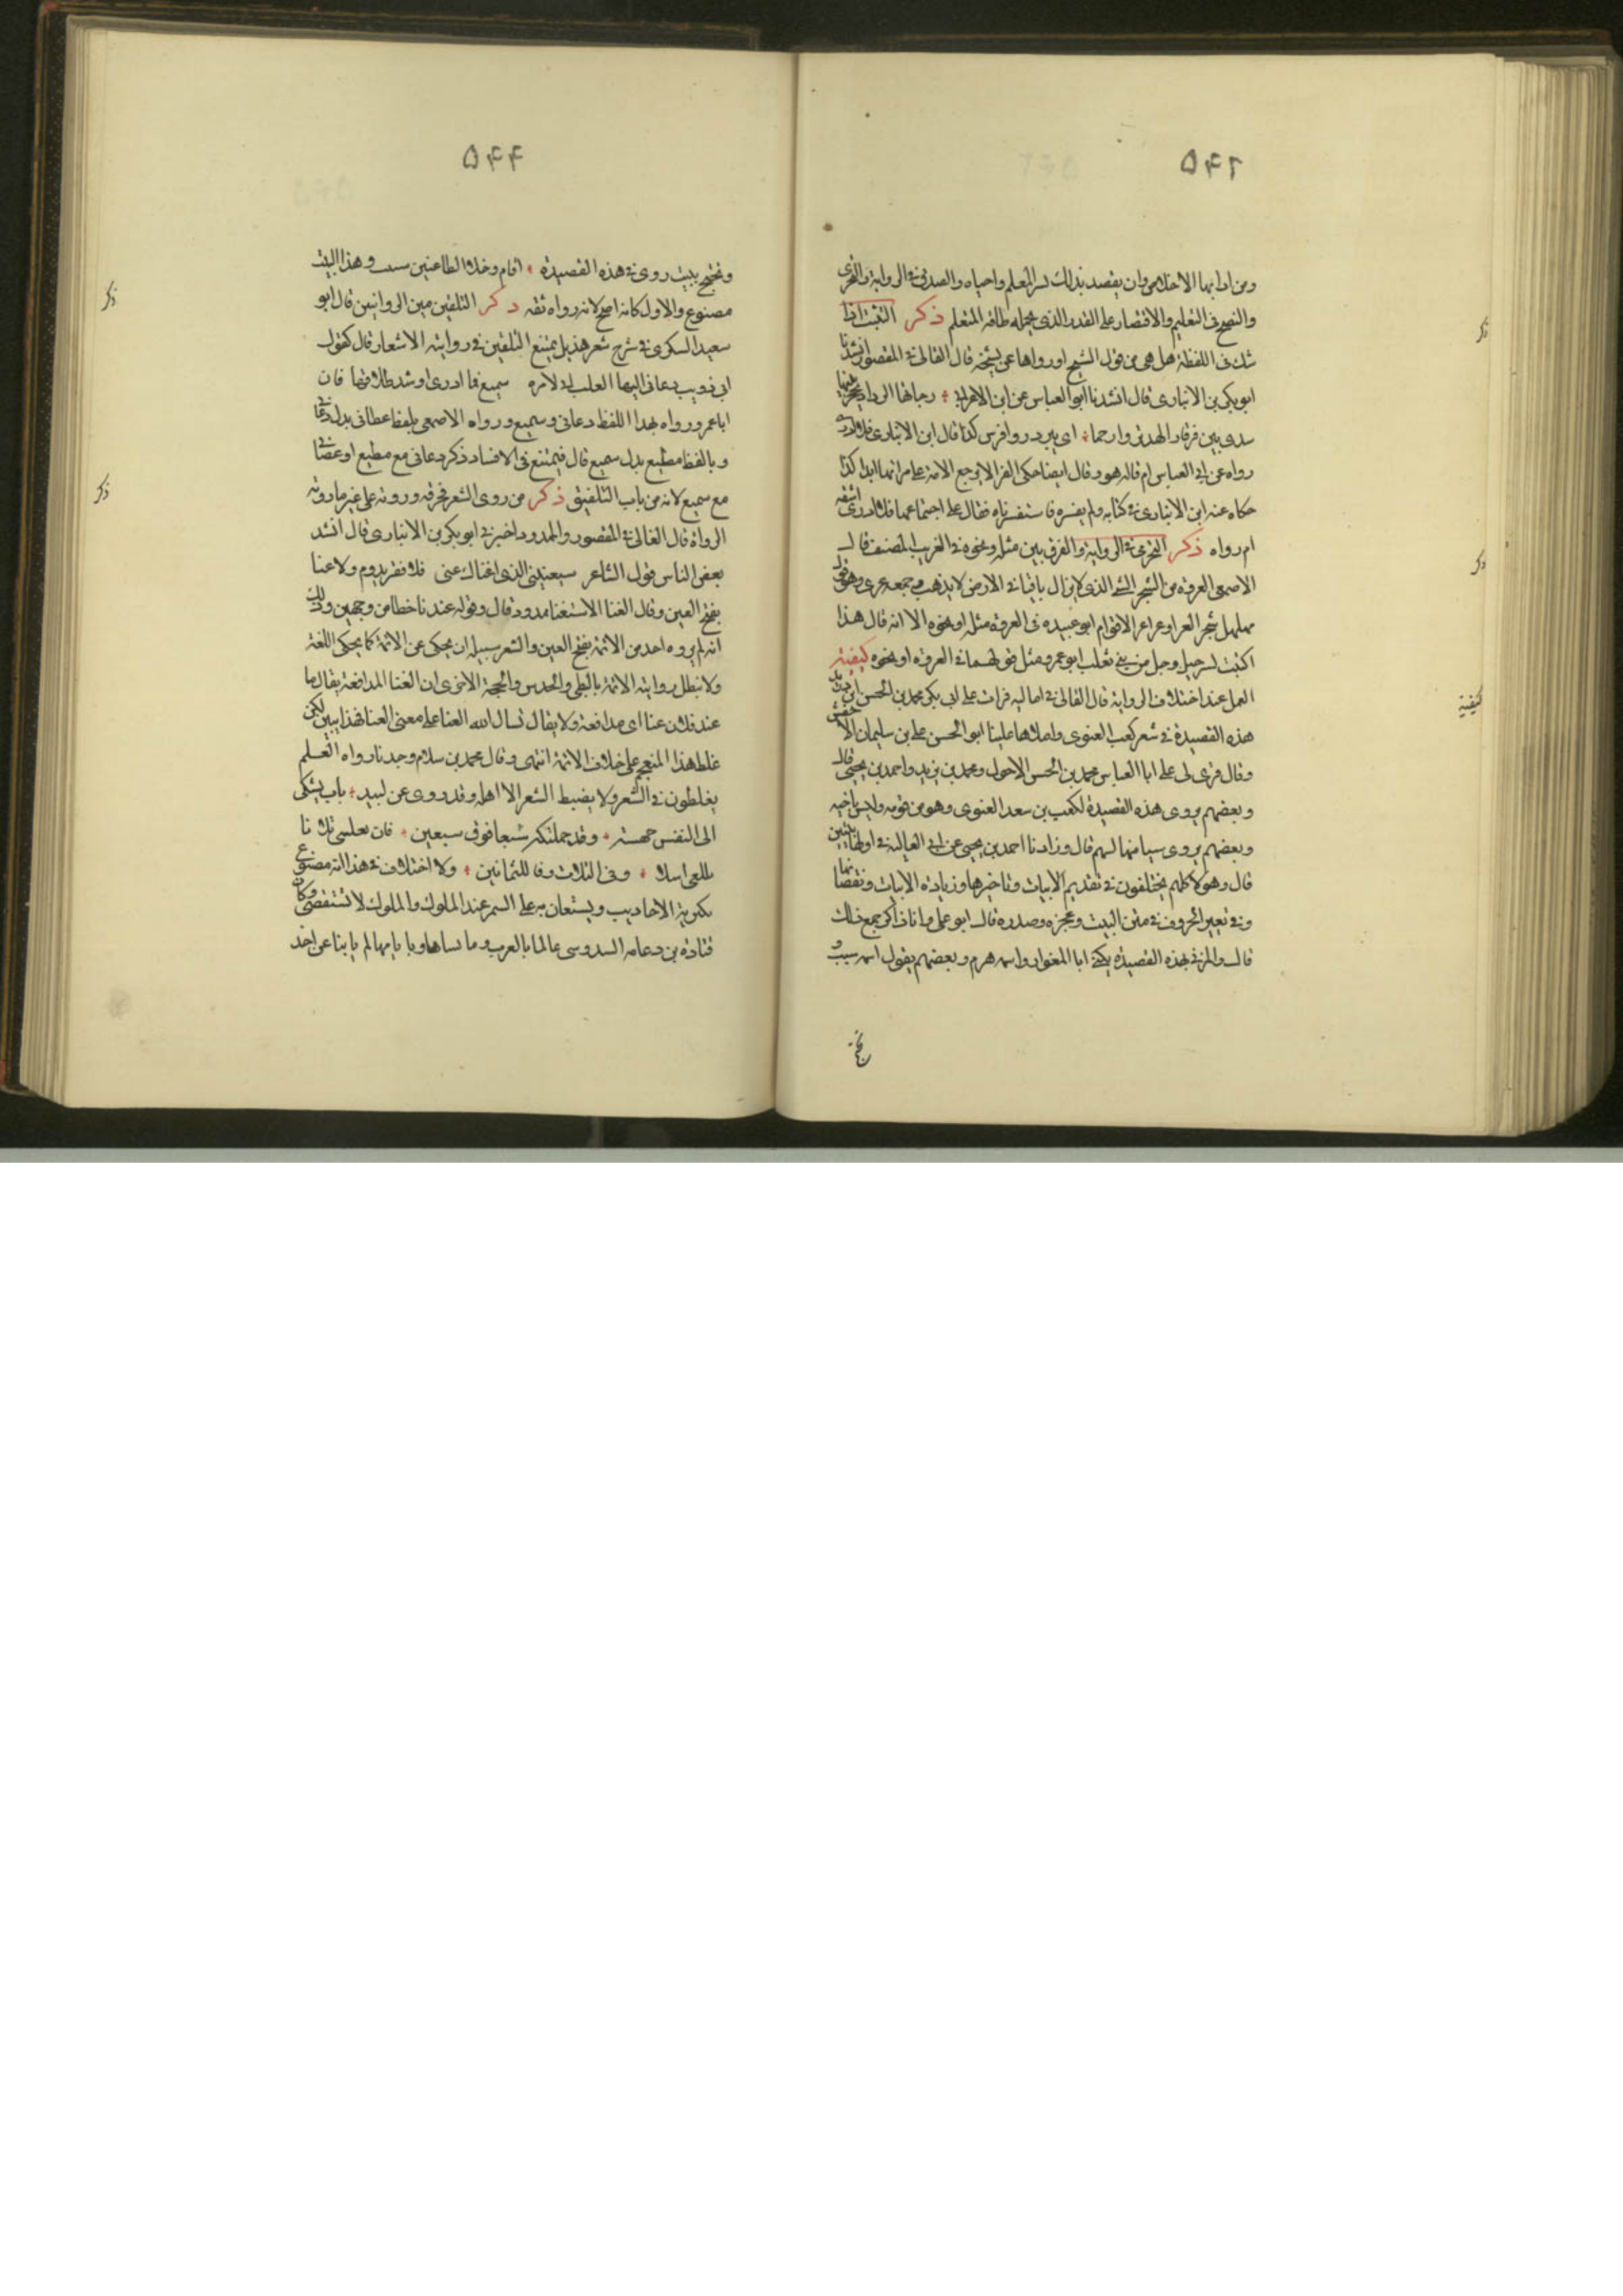 ۵۴۲
ومن ادابها الاخلاص وان يقصد بذلك نشر العلم واحياه والصدق في الرواية والتحرى
والنصح في التعليم والاقتصار على القدر الذى يحمله طاقة المتعلم ذكر التثبت اذا
شك في اللفظة هل هى من قول الشيخ اورواها عن شيخه قال القالى في المقصور انشدنا
ابو بكر بن الانبارى قال انشدنا ابو العباس عن ابن الاعرابي
كذا قال ابن الانبارى فلا ادرى
رواه عن ابي العباس ام قاله هو وقال ايضا حكى الفرا لا ترجع الامة على امرانها ابدا كذا
حكاه عنه ابن الانبارى في كتابه ولم يفسره فاستفسرناه فقال على اجتماعها فلا ادرى اشتقه
ام رواه ذكر التحرى في الرواية والفرق بين مثله ونحوه في الغريب المصنف قال
الاصمعى العروة من الشجر الشئ الذى لا يزال باقيا في الارض لا يذهب وجمعه عرى وهو قول
مهلهل شجر العرا وعراعر الاقوام ابو عبيده في العروة مثله او نحوه الا انه قال هذا
البيت لشرحبيل رجل من بني تغلب ابو عمرو مثل قولهما في العروة او نحوه كيفية
العمل عند اختلاف الرواية قال القالى في اماليه قرات على ابي بكر محمد بن الحسن ابن دريد
هذه القصيدة في شعر كعب الغنوى واملاها علينا ابو الحسن على بن سليمان الاخفش
وقال قرى لى على ابا العباس محمد بن الحسن الاحول ومحمد بن يزيد واحمد بن يحيى قال
وبعضهم يروى هذه القصيدة لكعب بن سعد الغنوى وهو من قومه وليس باخيه
وبعضهم يروى شيا منها لسهم قال وزادنا احمد بن يحيى عن ابي العاليه في اولها بيتين
قال وهولا كلهم يختلفون في تقديم الابيات وتاخيرها وزيادة الابيات ونقصانها
وفي تغيير الحروف في متن البيت وعجزه وصدره قال ابو على وانا ذاكر جميع ذلك
قال والمرثى بهذه القصيدة يكنى ابا المغوار واسمه هرم وبعضهم يقول اسمه شبيب
ذكر
ذكر
كيفية
۵۴۴
ويحتج ببيت روى في هذه القصيدة اقام وخلا الظاعنين شبيب وهذا البيت
مصنوع والاول كانه اصح لانه رواه ثقه ذكر التلفيق بين الروايتين قال ابو
سعيد السكرى في شرح شعر هذيل يمتنع التلفيق في رواية الاشعار قال كقول
ابي ذويب دعانى اليها القلب انى لامره سميع فما ادرى ارشد طلابها فان
ابا عمرو رواه بهذا اللفظ دعانى وسميع ورواه الاصمعى بلفظ عصانى بدل دعانى
وبلفظ مطيع بدل سميع قال فيمتنع في الانشاد ذكر دعانى مع مطيع او عصانى
مع سميع لانه من باب التلفيق ذكر من روى الشعر فحرفه ورواه على غير ما روته
الرواة قال القالى في المقصور والممدود اخبرنى ابو بكر بن الانبارى قال انشد
بعض الناس قول الشاعر سيغنينى الذى اغناك عنى فلا فقر يدوم ولا غنا
بفتح الغين وقال الغنا الاستغنا ممدود قال وقوله عندنا خطا من وجهين وذلك
انه لم يروه احد من الائمة بفتح الغين والشعر سبيله ان يحكى عن الائمة كما يحكى اللغة
ولا تبطل رواية الائمة بالتظنى والحدس والحجة الاخرى ان الغنا المدافعة يقال ما
عند فلان غنا اى مدافعة ولا يقال نسال الله الغنا على معنى الغنا فهذا يبين لك
غلط هذا المتقحم على خلاف الائمة انتهى وقال محمد بن سلام وجدنا رواة العلم
يغلطون في الشعر ولا يضبط الشعر الا اهله وقد روى عن لبيد باتت تشكى
الى النفس مجهشة وقد حملتك سبعا فوق سبعين فان تعيشى ثلاثا
وفي الثلاث وفا للثمانين ولا اختلاف في هذا انه مصنوع
تكثر به الاحاديث ويستعان به على السمر عند الملوك والملوك لا تستقصى وكان
قتادة بن دعامه السدوسى عالما بالعرب وبانسابها وبايامها لم ياتنا عن احد
ذكر
ذكر